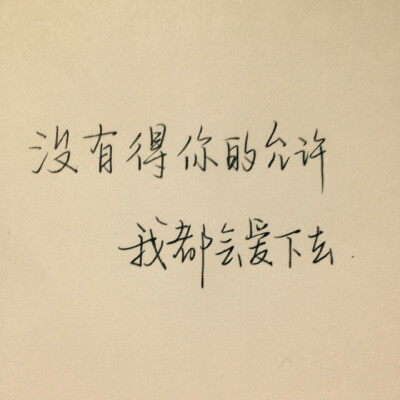 没有得你的允许
我都会爱下去.